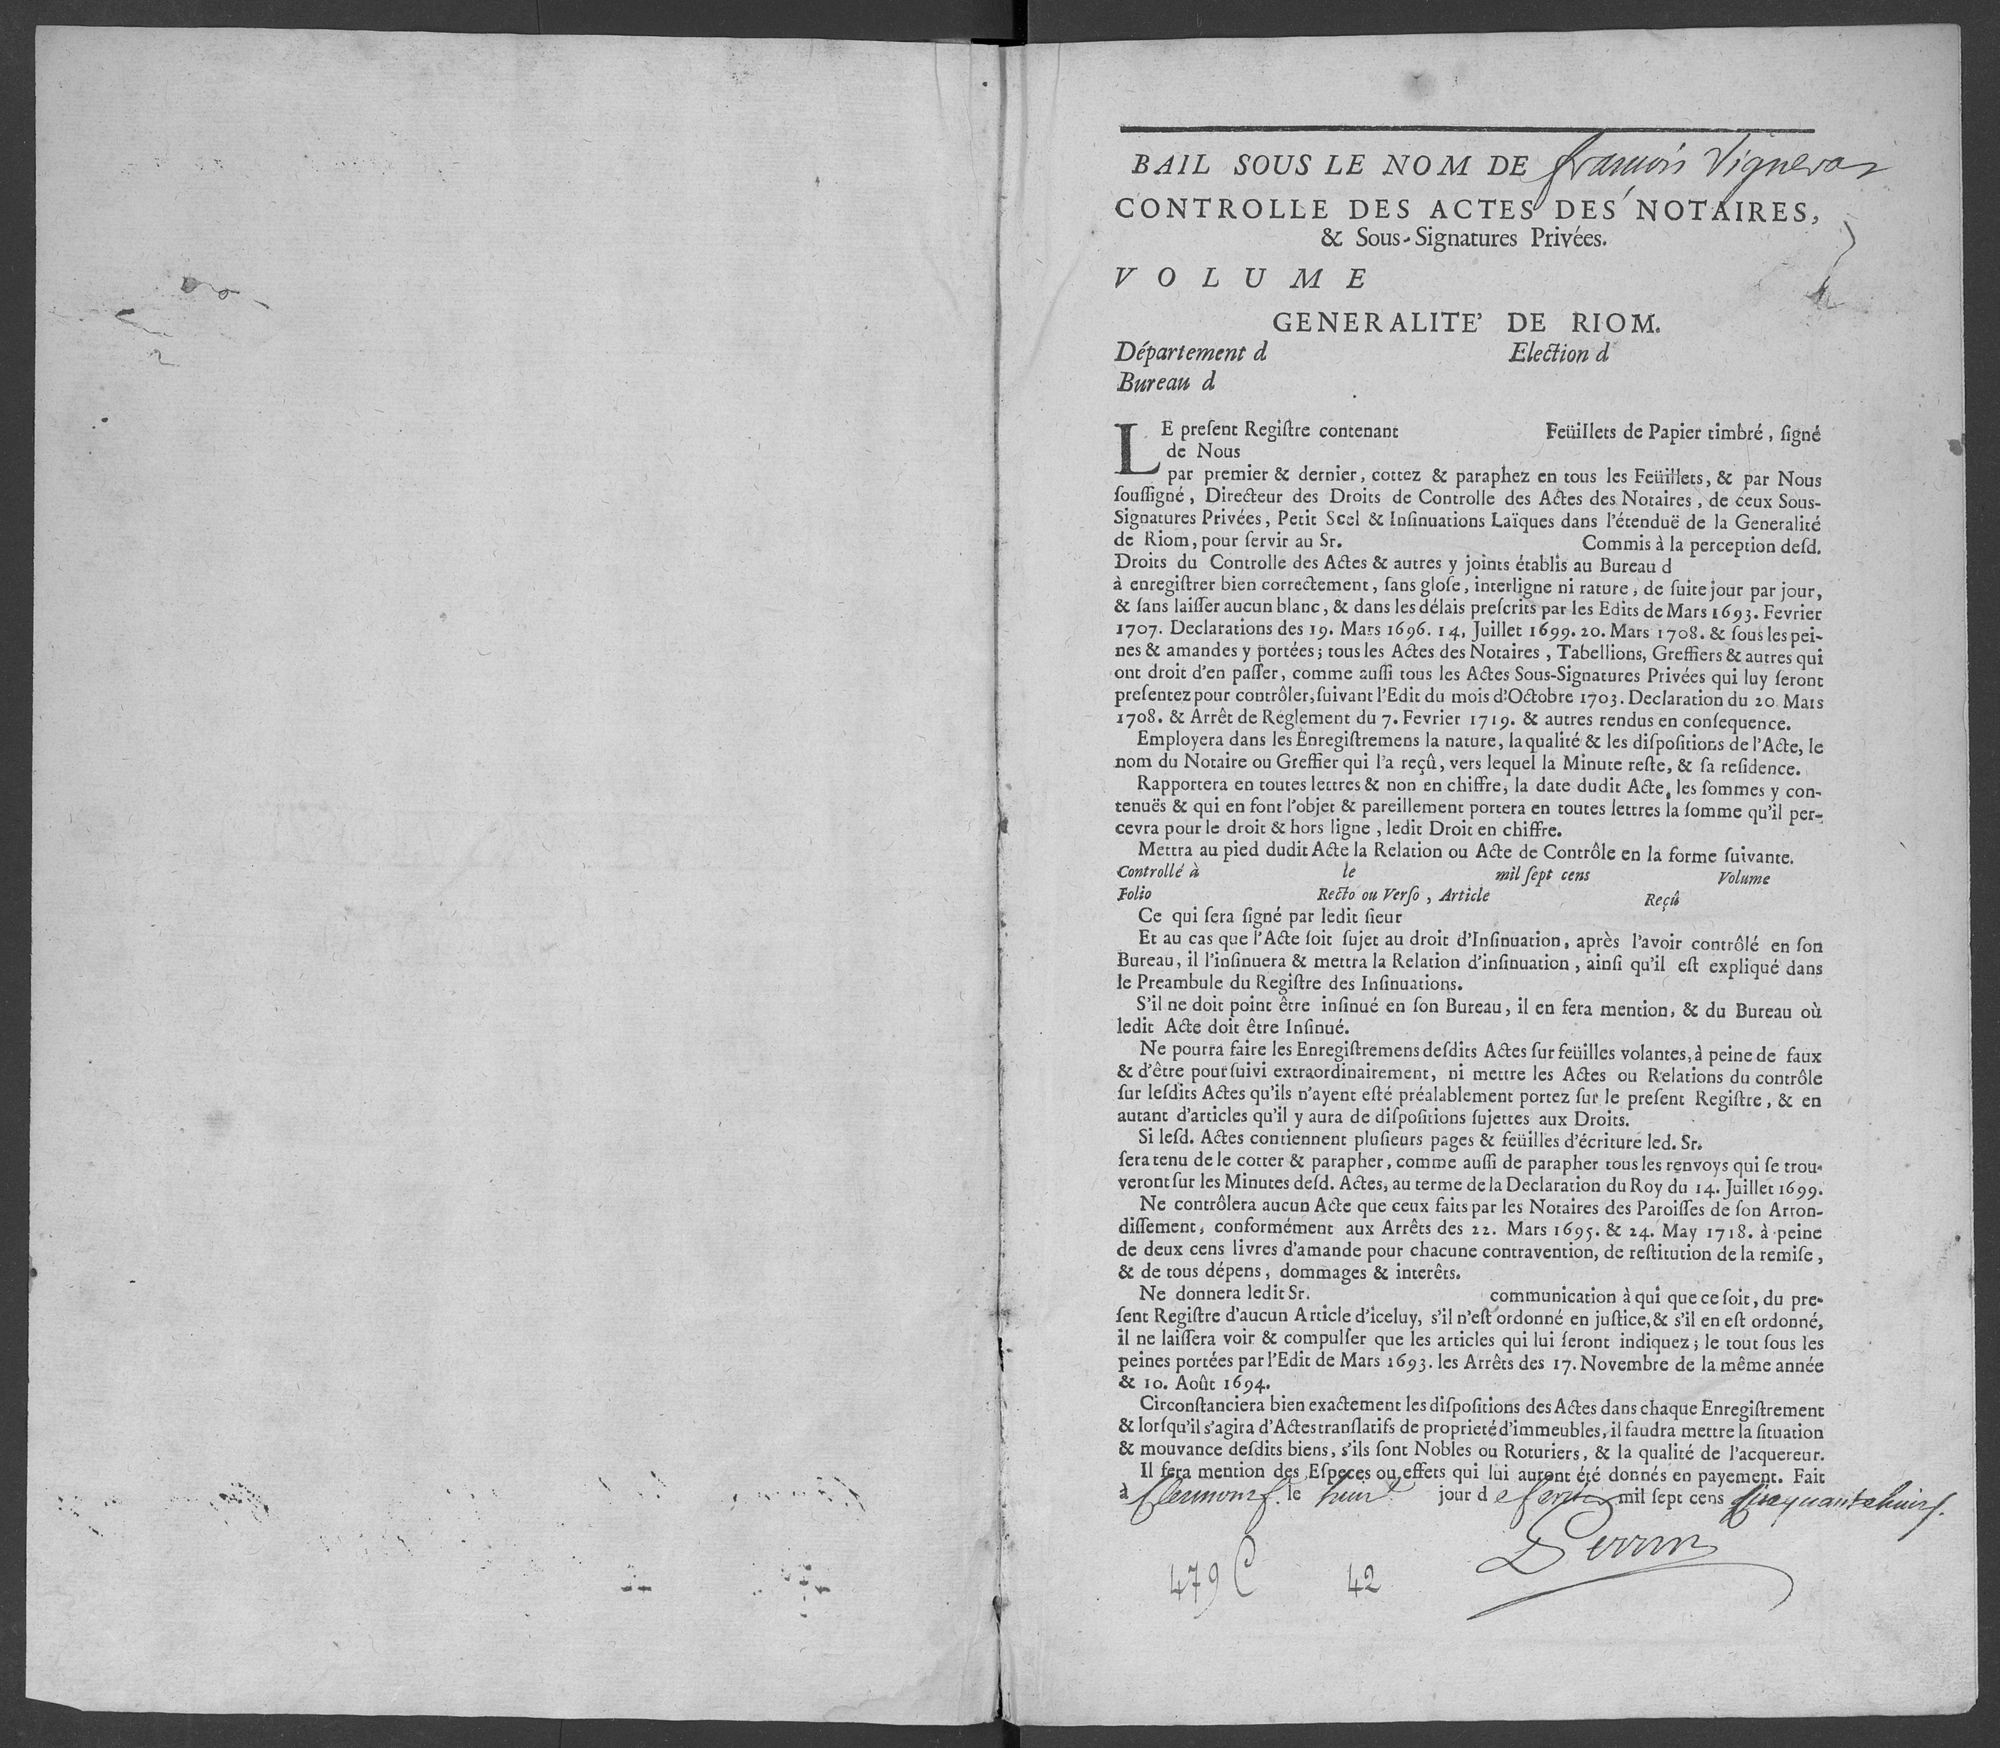 BAIL SOUS LE NOM DE françois Vigneras
CONTROLLE DES ACTES DES NOTAIRES,
& Sous-Signatures Privées.
VOLUME
GENERALITE' DE RIOM.
Département d Election d
Bureau d
LE preſent Regiſtre contenant Feüillets de Papier timbré, ſigné
de Nous
par premier & dernier, cottez & paraphez en tous les Feüillets, & par Nous
ſouſſigné, Directeur des Droits de Controlle des Actes des Notaires, de ceux Sous-
Signatures Privées, Petit Scel & Inſinuations Laïques dans l'étenduë de la Generalité
de Riom, pour ſervir au Sr. Commis à la perception deſd.
Droits du Controlle des Actes & autres y joints établis au Bureau d
à enregiſtrer bien correctement, ſans gloſe, interligne ni rature, de ſuite jour par jour,
& ſans laiſſer aucun blanc, & dans les délais preſcrits par les Edits de Mars 1693. Fevrier
1707. Declarations des 19. Mars 1696. 14. Juillet 1699. 20. Mars 1708. & ſous les pei-
nes & amandes y portées; tous les Actes des Notaires, Tabellions, Greffiers & autres qui
ont droit d'en paſſer, comme auſſi tous les Actes Sous-Signatures Privées qui luy ſeront
preſentez pour contrôler, ſuivant l'Edit du mois d'Octobre 1703. Declaration du 20 Mars
1708. & Arrêt de Réglement du 7. Fevrier 1719. & autres rendus en conſequence.
Employera dans les Enregiſtremens la nature, la qualité & les diſpoſitions de l'Acte, le
nom du Notaire ou Greffier qui l'a reçû, vers lequel la Minute reſte, & ſa reſidence.
Rapportera en toutes lettres & non en chiffre, la date dudit Acte, les ſommes y con-
tenuës & qui en font l'objet & pareillement portera en toutes lettres la ſomme qu'il per-
cevra pour le droit & hors ligne, ledit Droit en chiffre.
Mettra au pied dudit Acte la Relation ou Acte de Contrôle en la forme ſuivante.
Controllé à le mil ſept cens Volume
Folio Recto ou Verſo, Article Reçû
Ce qui ſera ſigné par ledit ſieur
Et au cas que l'Acte ſoit ſujet au droit d'Inſinuation, après l'avoir contrôlé en ſon
Bureau, il l'inſinuera & mettra la Relation d'inſinuation, ainſi qu'il eſt expliqué dans
le Preambule du Regiſtre des Inſinuations.
S'il ne doit point être inſinué en ſon Bureau, il en fera mention, & du Bureau où
ledit Acte doit être Inſinué.
Ne pourra faire les Enregiſtremens deſdits Actes ſur feüilles volantes, à peine de faux
& d'être pourſuivi extraordinairement, ni mettre les Actes ou Relations du contrôle
ſur leſdits Actes qu'ils n'ayent eſté préalablement portez ſur le preſent Regiſtre, & en
autant d'articles qu'il y aura de diſpoſitions ſujettes aux Droits.
Si leſd. Actes contiennent pluſieurs pages & feüilles d'écriture led. Sr.
ſera tenu de le cotter & parapher, comme auſſi de parapher tous les renvoys qui ſe trou-
veront ſur les Minutes deſd. Actes, au terme de la Declaration du Roy du 14. Juillet 1699.
Ne contrôlera aucun Acte que ceux faits par les Notaires des Paroiſſes de ſon Arron-
diſſement, conformément aux Arrêts des 22. Mars 1695. & 24. May 1718. à peine
de deux cens livres d'amande pour chacune contravention, de reſtitution de la remiſe,
& de tous dépens, dommages & interêts.
Ne donnera ledit Sr. communication à qui que ce ſoit, du pre-
ſent Regiſtre d'aucun Article d'iceluy, s'il n'eſt ordonné en juſtice, & s'il en eſt ordonné,
il ne laiſſera voir & compulſer que les articles qui lui ſeront indiquez; le tout ſous les
peines portées par l'Edit de Mars 1693. les Arrêts des 17. Novembre de la même année
& 10. Août 1694.
Circonſtanciera bien exactement les diſpoſitions des Actes dans chaque Enregiſtrement
& lorſqu'il s'agira d'Actes tranſlatifs de proprieté d'immeubles, il faudra mettre la ſituation
& mouvance deſdits biens, s'ils ſont Nobles ou Roturiers, & la qualité de l'acquereur.
Il fera mention des Eſpeces ou effets qui lui auront été donnés en payement. Fait
à Clermont. le huit jour de fevrier mil ſept cens Cinquante huit.
Perrin
479 C 42